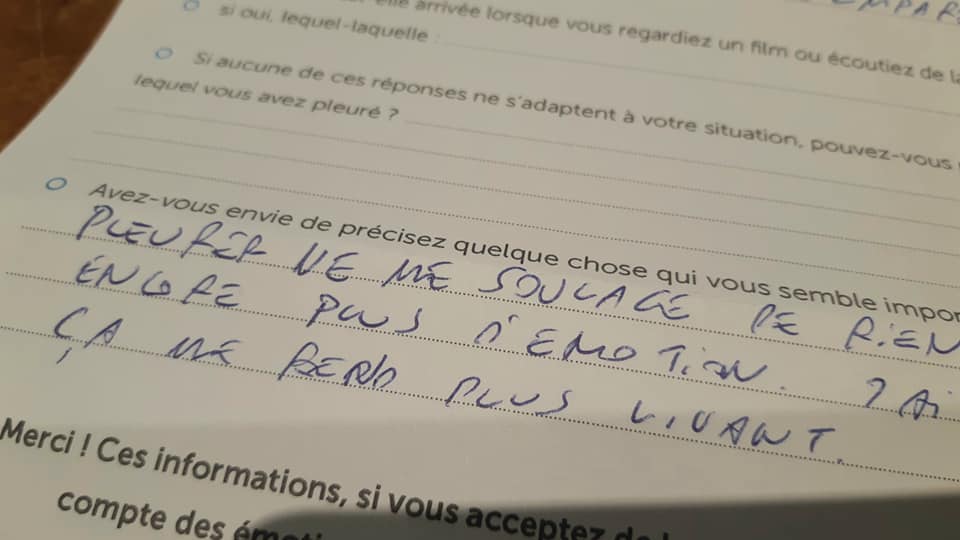 elle arrivée lorsque vous regardiez un film ou écoutiez de
si oui, lequel-laquelle :
Si aucune de ces réponses ne s'adaptent à votre situation, pouvez-vous
lequel vous avez pleuré ?
Avez-vous envie de précisez quelque chose qui vous semble impor
PLEURER NE ME SOULAGE DE RIEN
ENCORE PLUS D'EMOTION. J'AI
ÇA ME REND PLUS VIVANT.
Merci ! Ces informations, si vous acceptez de
compte des